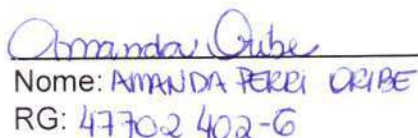 Amanda Oribe
Nome: AMANDA PERRI ORIBE
RG: 47702 402-6